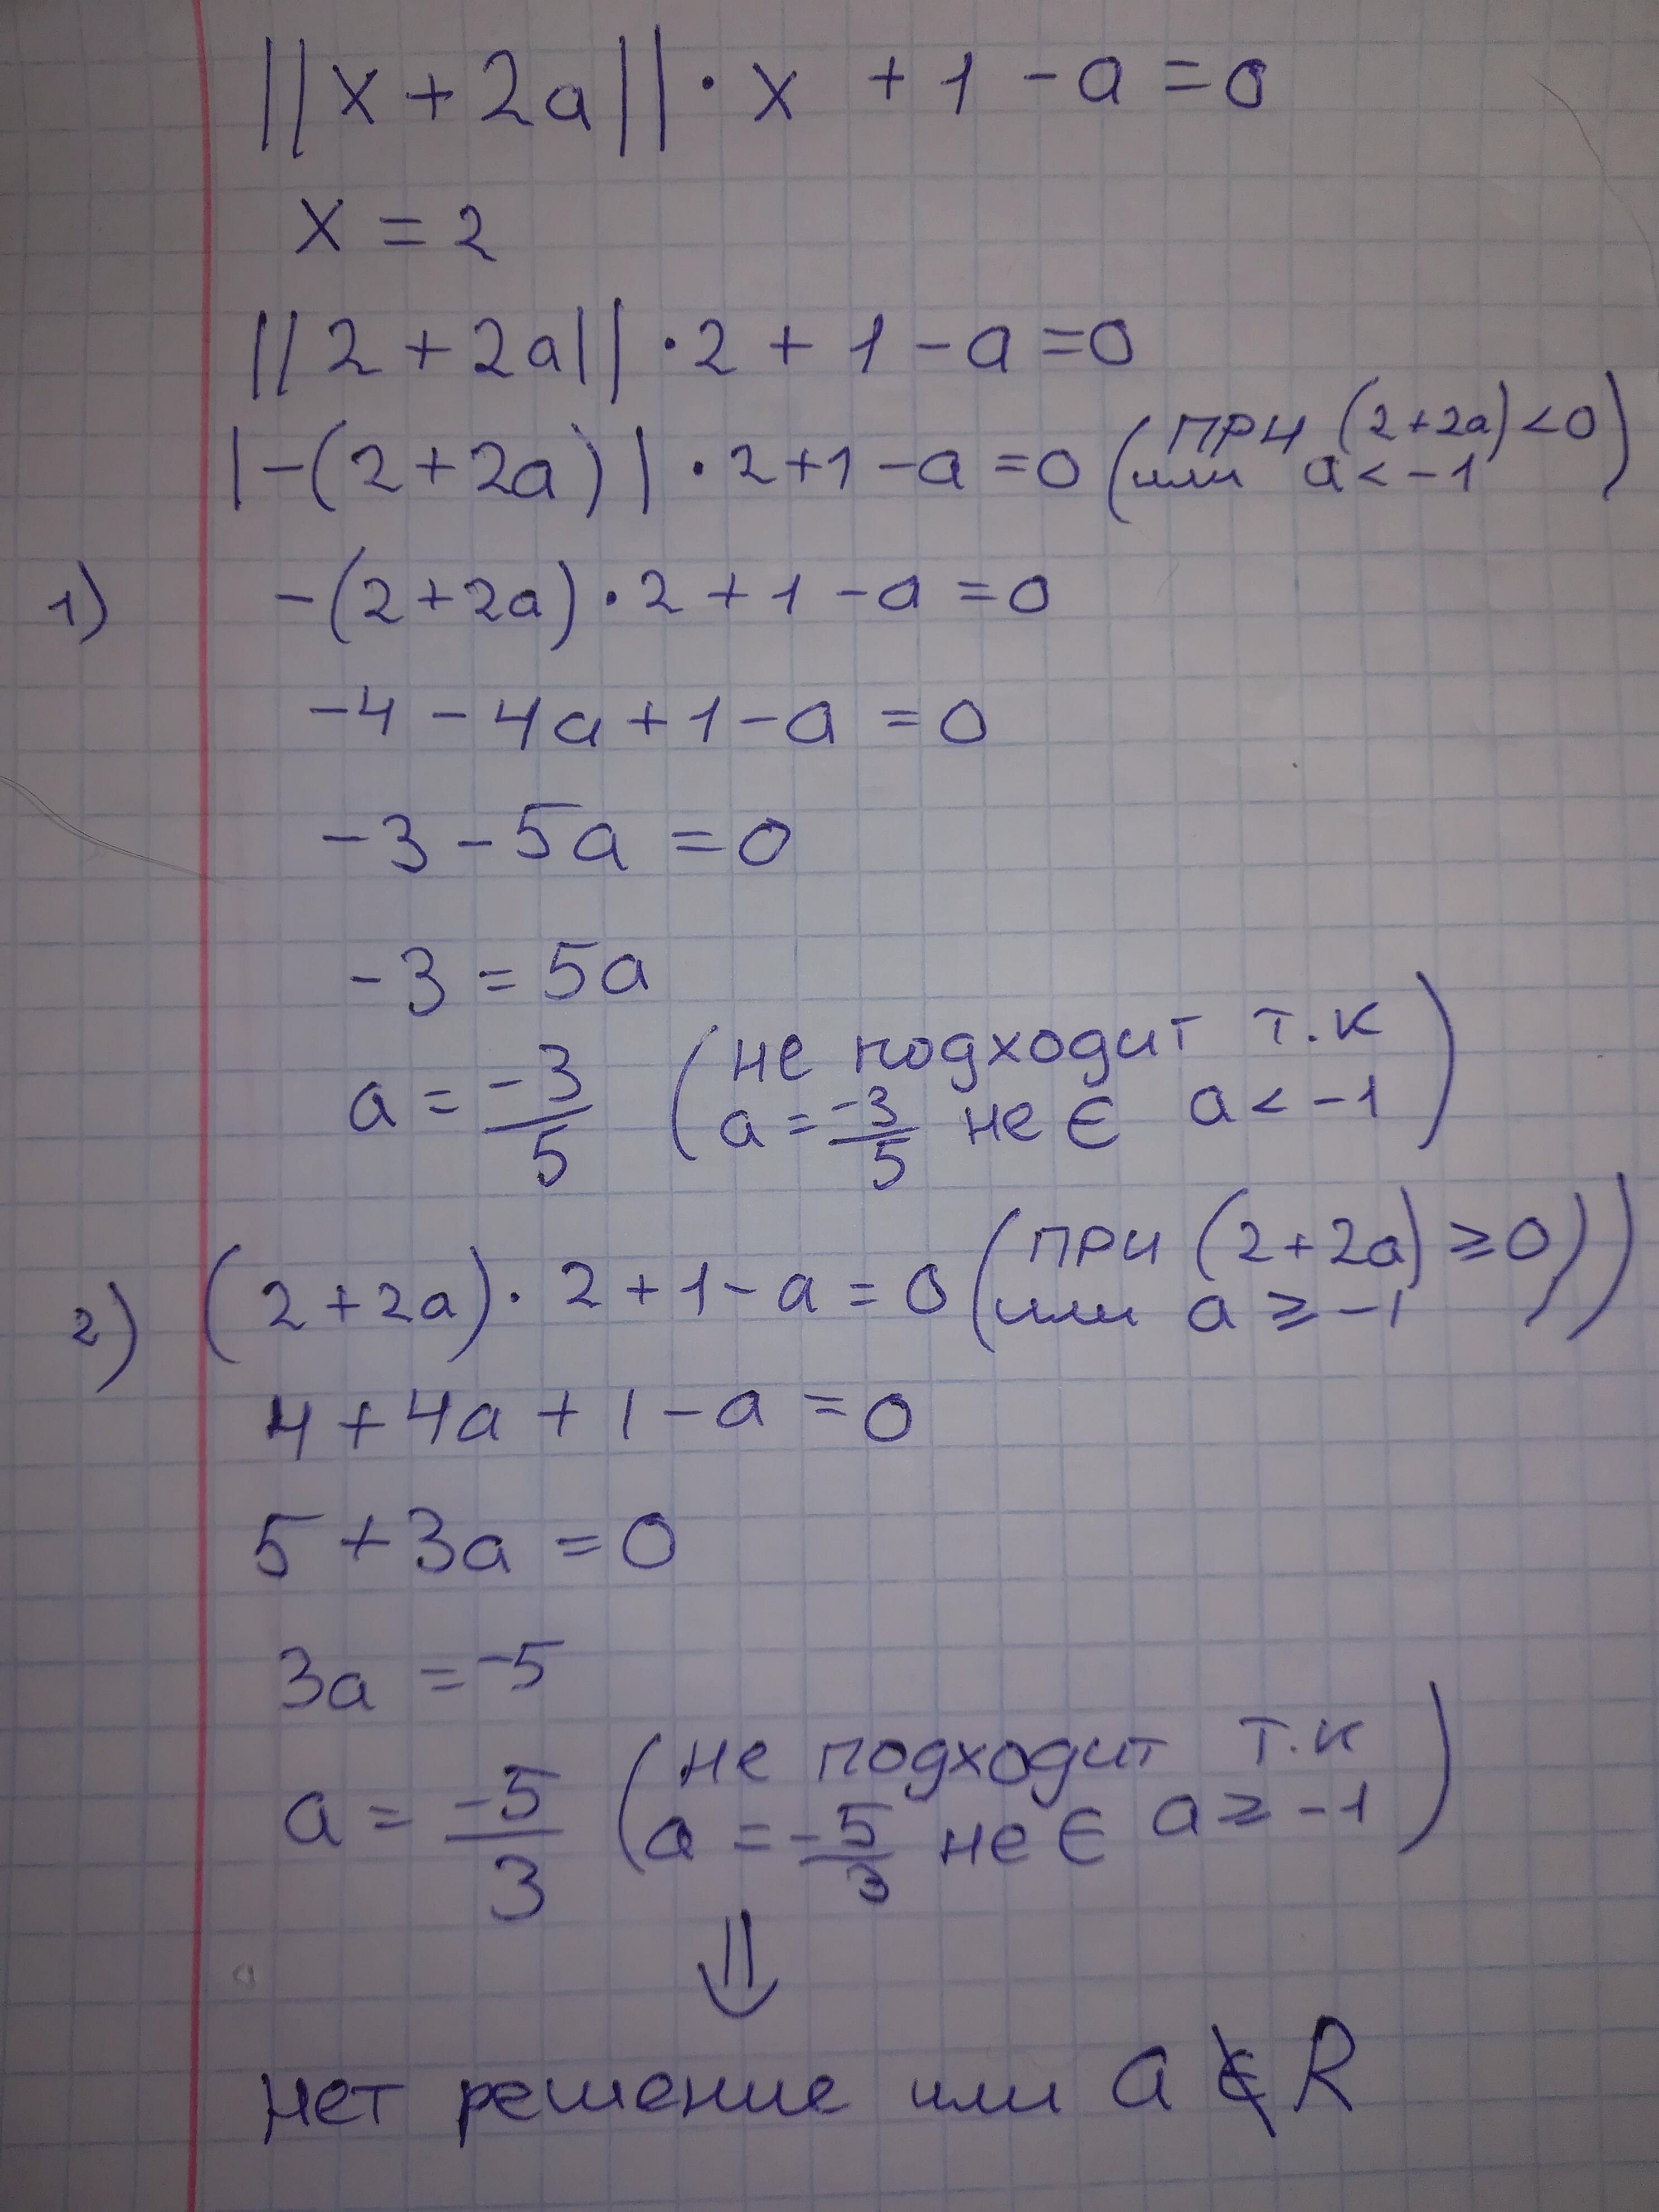 ||x + 2a|| · x + 1 - a = 0
x = 2
||2 + 2a|| · 2 + 1 - a = 0
|-(2 + 2a)| · 2 + 1 - a = 0 (при (2 + 2a) < 0
или a < -1)
1) -(2 + 2a) · 2 + 1 - a = 0
-4 - 4a + 1 - a = 0
-3 - 5a = 0
-3 = 5a
a = -3/5 (не подходит т.к
a = -3/5 не ∈ a < -1)
2) (2 + 2a) · 2 + 1 - a = 0 (при (2 + 2a) ≥ 0)
или a ≥ -1)
4 + 4a + 1 - a = 0
5 + 3a = 0
3a = -5
a = -5/3 (не подходит т.к
a = -5/3 не ∈ a ≥ -1)
⇓
нет решение или a ∉ R